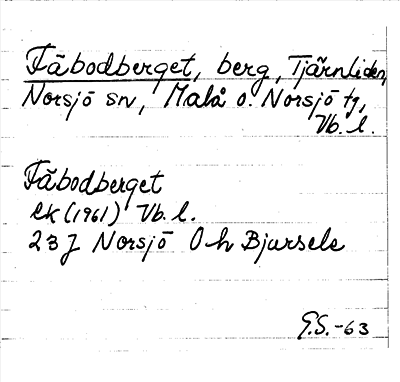 Fäbodberget, berg, Tjärnliden,
Norsjö sn, Malå o. Norsjö tg,
Vb. l.
Fäbodberget
ek (1961) Vb. l.
23J Norsjö 0h Bjursele
G.S. -63